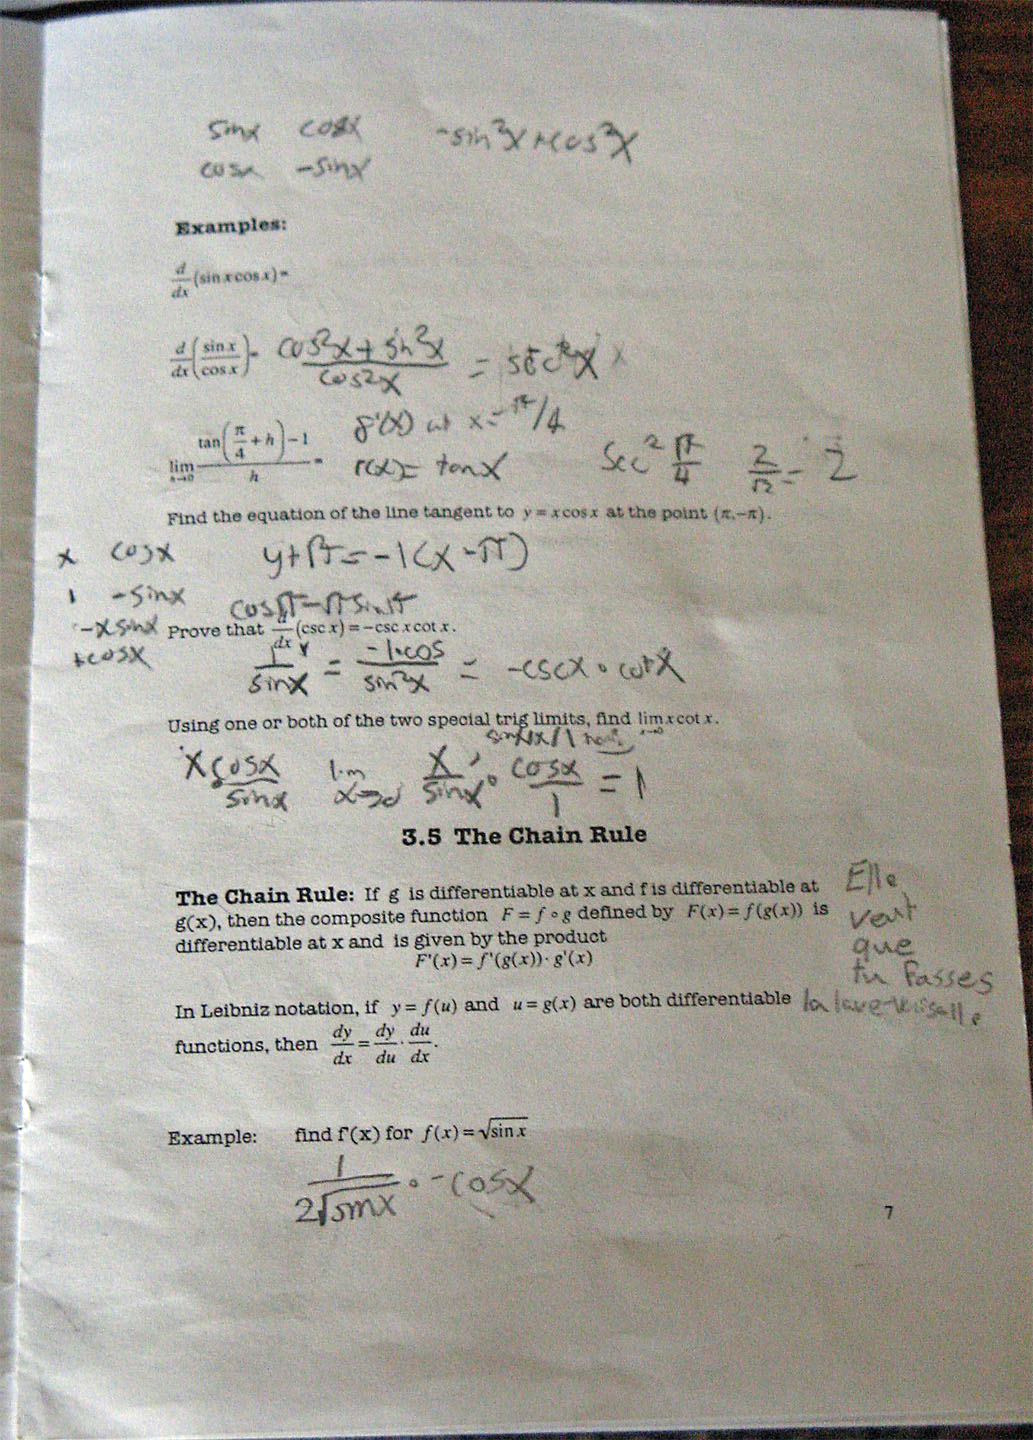 sinx cosx -sin²x+cos²x
cosx -sinx
Examples:
d/dx (sin x cos x)=
d/dx (sin x / cos x)= (cos²x + sin²x) / cos²x = sec²x
f'(x) at x=π/4
lim h→0 (tan(π/4 + h) - 1) / h = f(x)= tanx sec² π/4 2/√2 = 2
Find the equation of the line tangent to y = x cos x at the point (π,-π).
x cosx y+π=-1(x-π)
1 -sinx cosπ-πsinπ
-xsinx Prove that d/dx (csc x) = -csc x cot x.
+cosx 1/sinx = -1·cos / sin²x = -cscx · cotx
Using one or both of the two special trig limits, find lim x→0 x cot x.
x cosx/sinx lim x→0 x/sinx · cosx/1 = 1
3.5 The Chain Rule
The Chain Rule: If g is differentiable at x and f is differentiable at
g(x), then the composite function F = f ∘ g defined by F(x) = f(g(x)) is
differentiable at x and is given by the product
F'(x) = f'(g(x))· g'(x)
Elle
veut
que
tu fasses
la lave-vaisselle
In Leibniz notation, if y = f(u) and u = g(x) are both differentiable
functions, then dy/dx = dy/du · du/dx.
Example: find f'(x) for f(x) = √sin x
1/(2√sinx) · -cosx
7